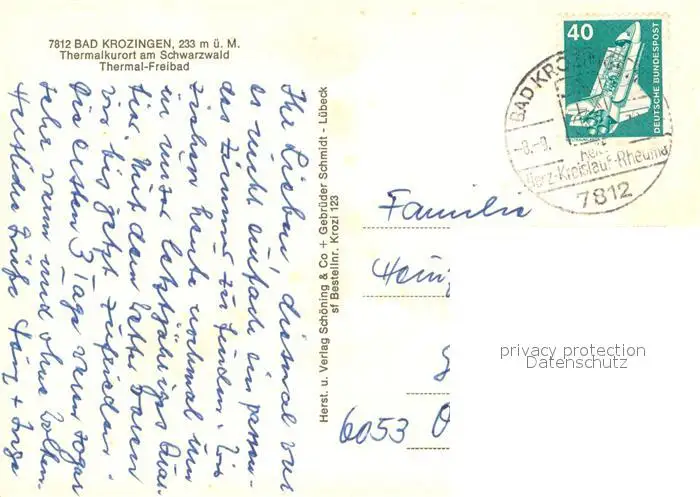 7812 BAD KROZINGEN, 233 m ü. M.
Thermalkurort am Schwarzwald
Thermal-Freibad
Ihr Lieben diesmal war
es nicht einfach ein passen-
des Zimmer zu finden. Wir
ziehen heute nochmal um
in unser letztjähriges Quar-
tier. Mit dem Wetter waren
wir bis jetzt zufrieden.
Die ersten 3 Tage waren sogar
sehr warm und ohne Wolken.
Herzliche Grüße
Herst. u. Verlag Schöning & Co + Gebrüder Schmidt - Lübeck
sf Bestellnr. Krozi 123
40
DEUTSCHE BUNDESPOST
BAD KROZ
-8.-9.
Herz-Kreislauf-Rheuma
7812
Familie
6053
privacy protection
Datenschutz